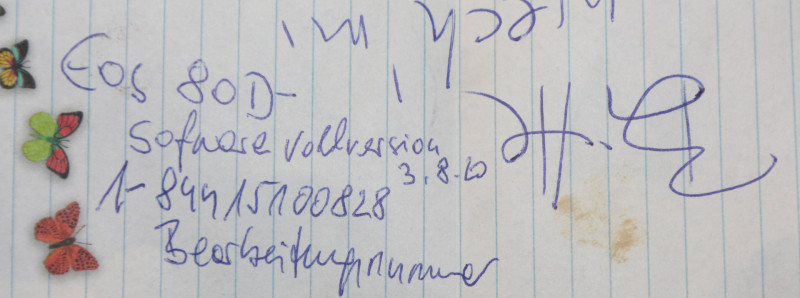 EOS 80D-
Sofware vollversion
3.8.20
1-84415100828
Bearbeitungnummer